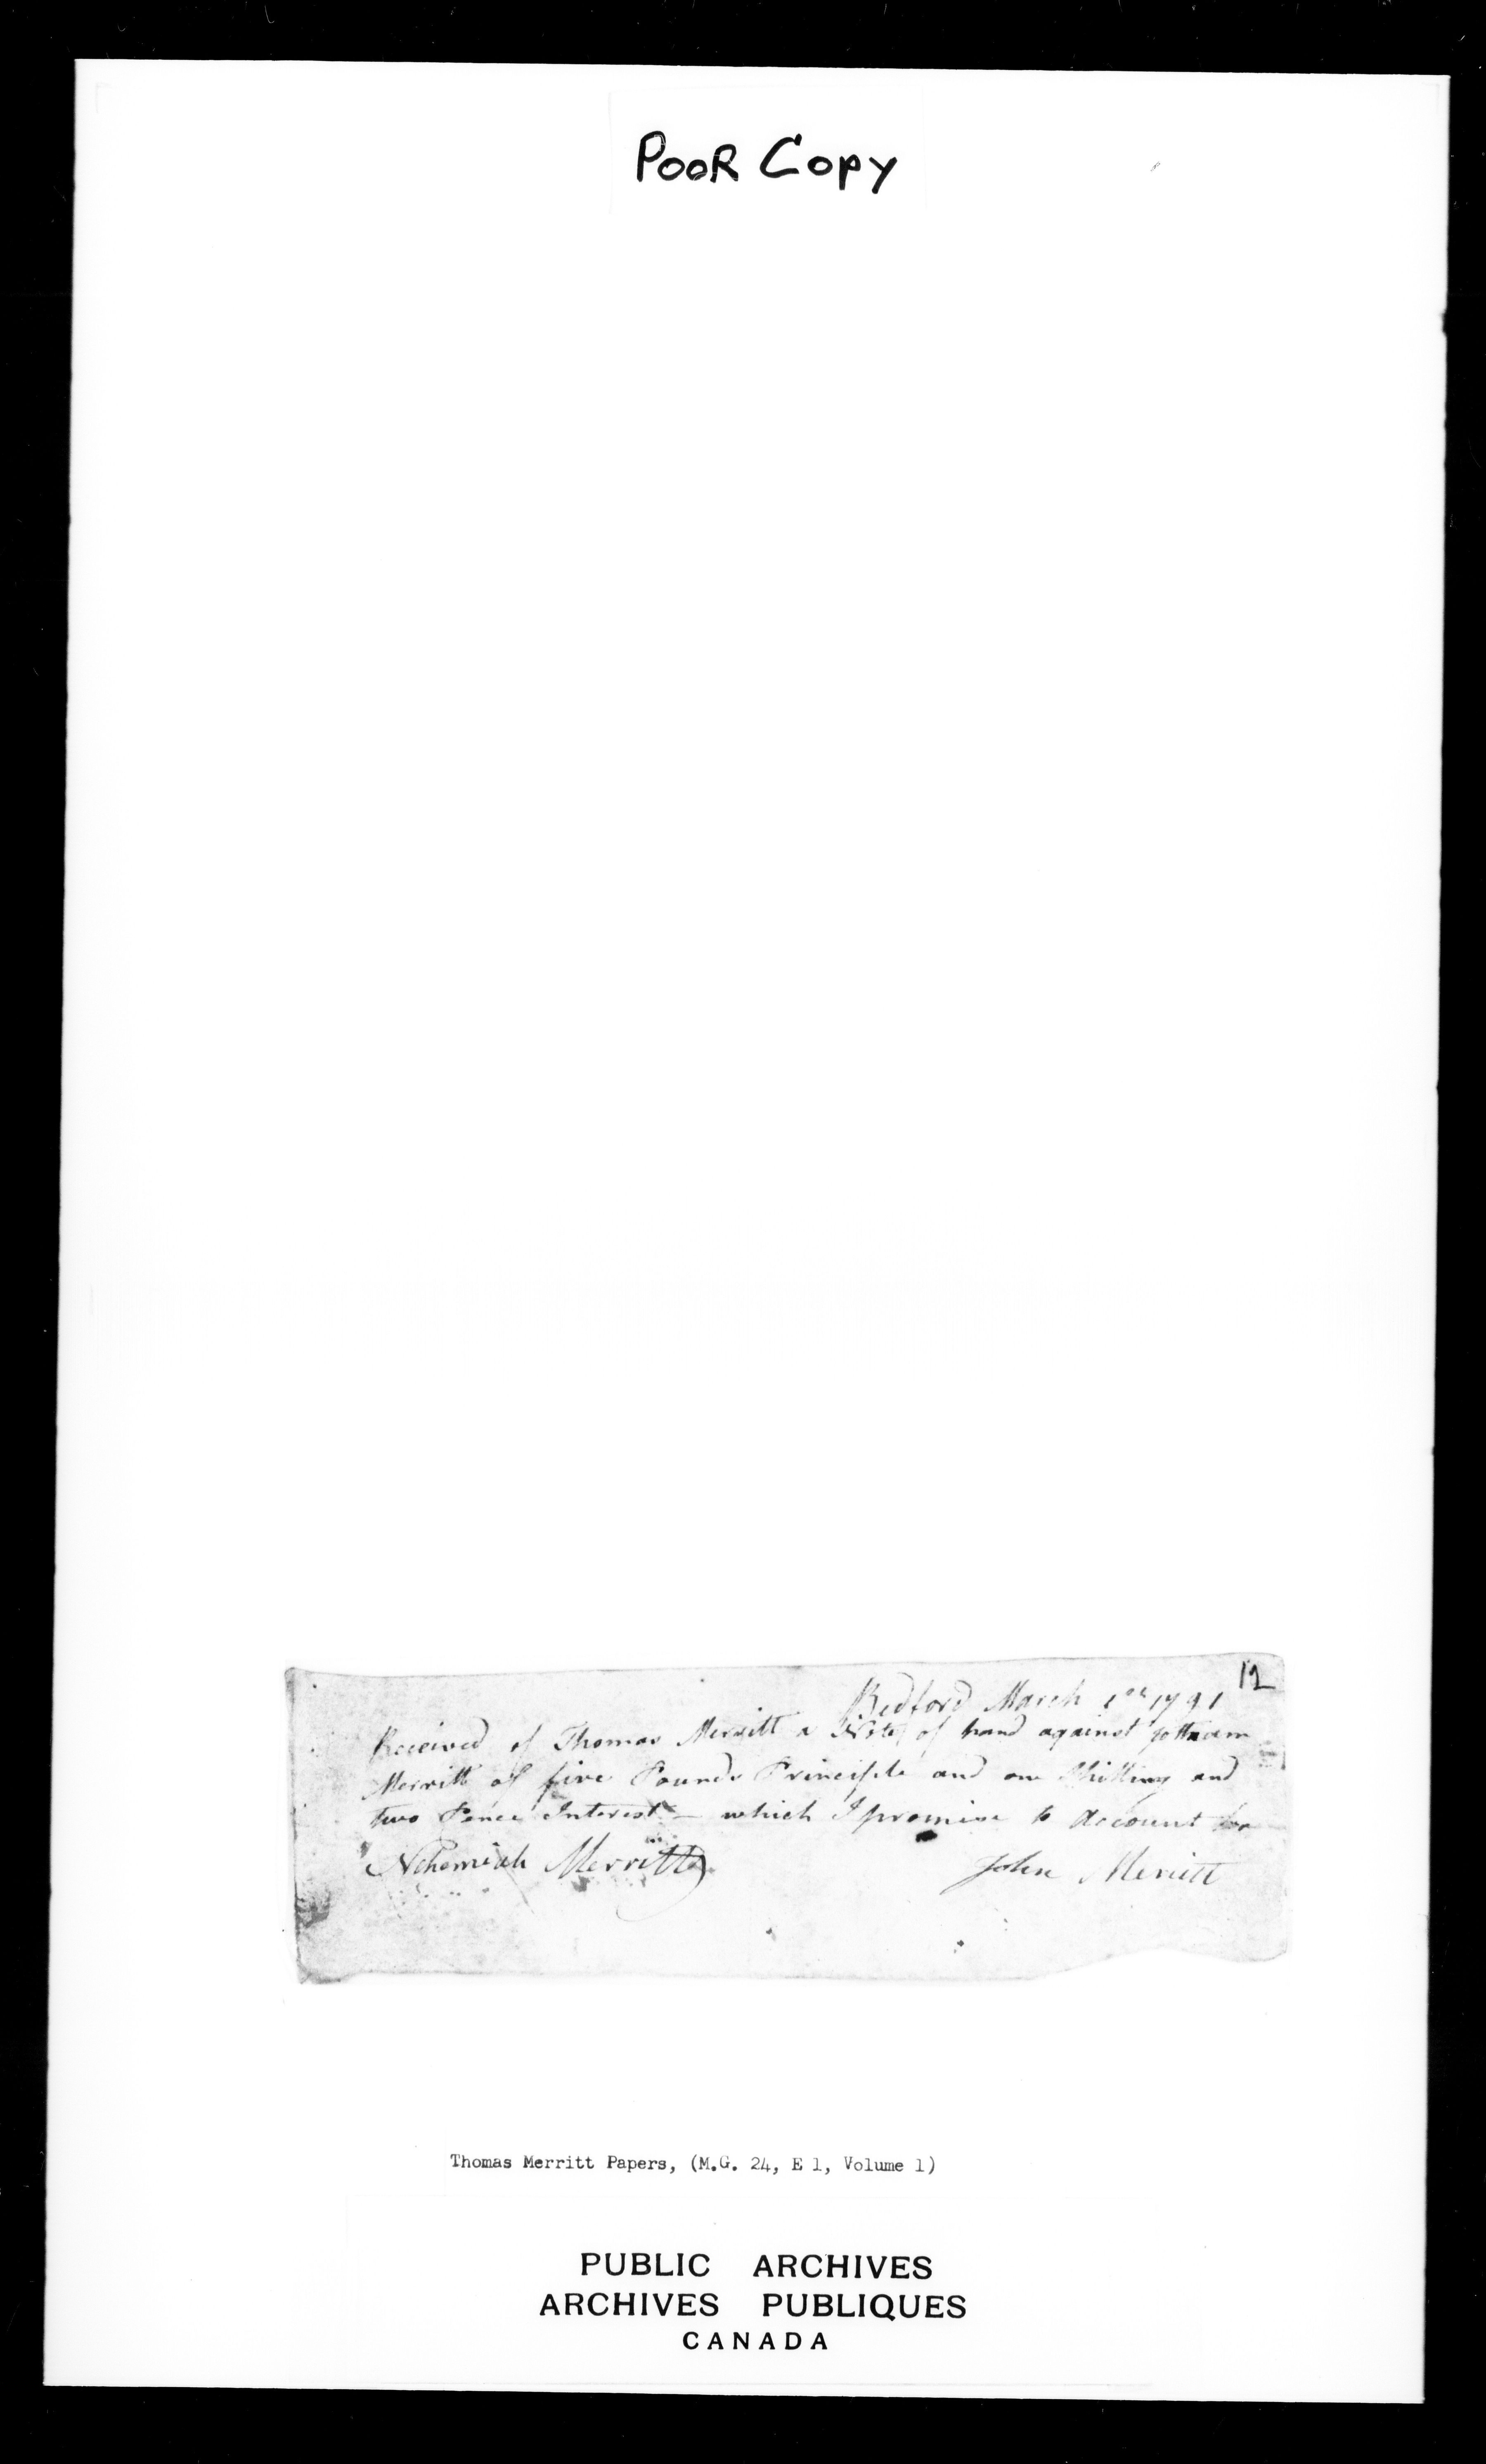 POOR COPY
12
Bedford March 1791
Received of Thomas Merritt a Note of hand against Jotham
Merritt of five Pounds Principle and one Shilling and
two Pence Interest – which I promise to account for
Nehemiah Merritt
John Merritt
Thomas Merritt Papers, (M.G. 24, E 1, Volume 1)
PUBLIC ARCHIVES
ARCHIVES PUBLIQUES
CANADA